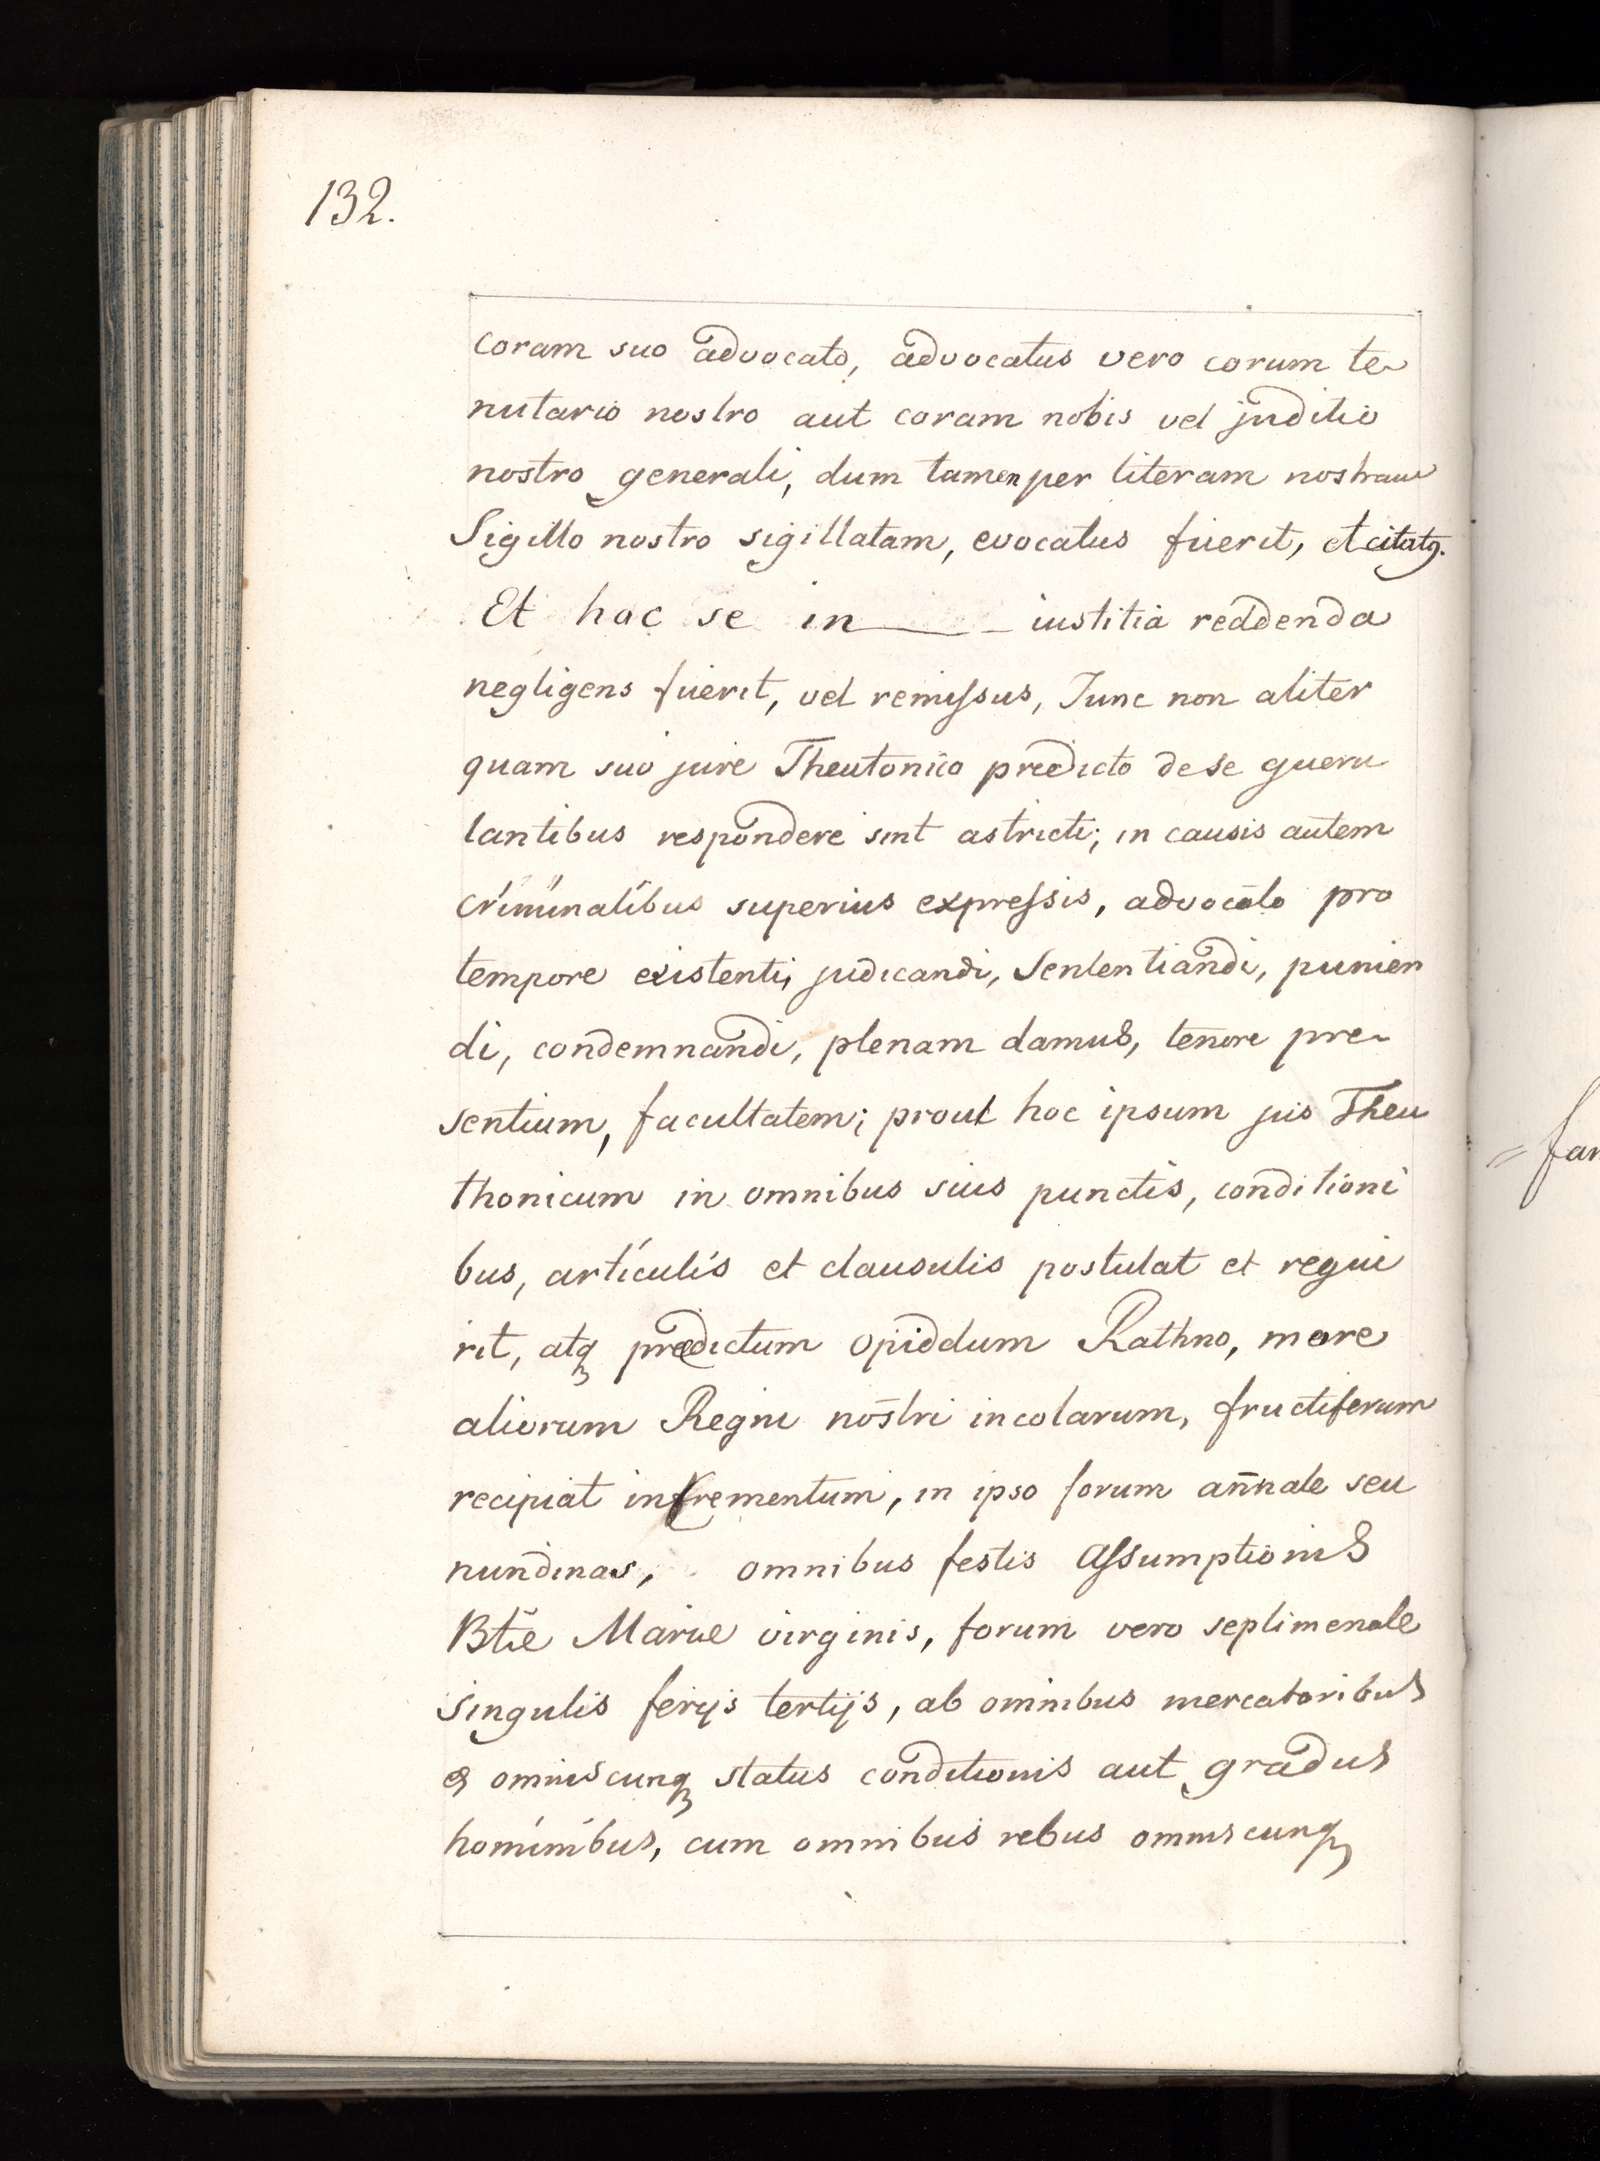 132.
coram suo advocato, advocatus vero corum te
nutario nostro aut coram nobis vel juditio
nostro generali, dum tamen per literam nostram
Sigillo nostro sigillatam, evocatus fuerit, et citatꝯ.
Et hoc se in ——— iustitia reddenda
negligens fuerit, vel remissus, Tunc non aliter
quam suo jure Theutonico predicto de se queru
lantibus respondere sint astricti; in causis autem
criminalibus superius expressis, advocato pro
tempore existenti, judicandi, Sententiandi, punien
di, condemnandi, plenam damus, tenore pre
sentium, facultatem; prout hoc ipsum jus Theu
thonicum in omnibus suis punctis, conditioni
bus, articulis et clausulis postulat et requi
rit, atqꝫ predictum opiddum Rathno, more
aliorum Regni nostri incolarum, fructiferum
recipiat incrementum, in ipso forum annale seu
nundinas, omnibus festis Assumptionis
Btē Marie virginis, forum vero septimenale
singulis ferijs tertijs, ab omnibus mercatoribus
& omniscunqꝫ status conditionis aut gradus
hominibus, cum omnibus rebus omniscunqꝫ
= fan